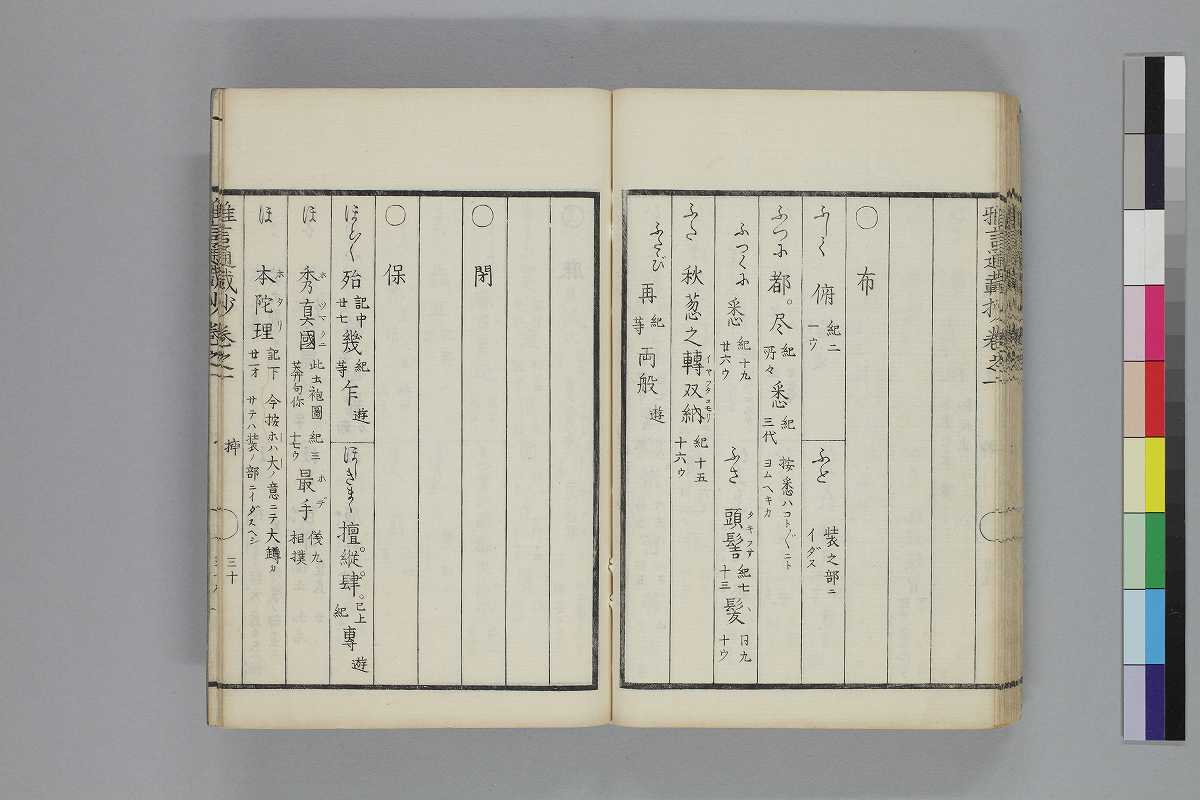 雅言通載抄 巻之一
〇 布
ふしく 俯 紀二 一ウ ふと 装之部ニイダス
ふつふ 都。尽 紀 所々 悉 紀 三代 按悉ハコト〴〵クニトヨムヘキカ
ふつくふ 悉 紀十九 廿六ウ ふさ 頭髻 タキフサ 紀七 十三 髪 同九 十ウ
ふた 秋葱之轉双納 イヤフタコモリ 紀十五 十六ウ
ふたゝび 再 紀等 両般 遊
〇 閉
〇 保
ほとんく 殆 記中 廿七 幾 紀等 乍 遊 ほしきまゝ 擅。縦。肆。已上紀 專 遊
ほ 秀真國 ホツマクニ 此云袍圖莽句你 紀三 十七ウ 最手 ホデ 後九 相撲
ほ 本陀理 ホタリ 記下 廿一オ 今按ホハ大ノ意ニテ大罇カ サテハ装ノ部ニイダスヘシ
雅言通載抄 巻之一 三十